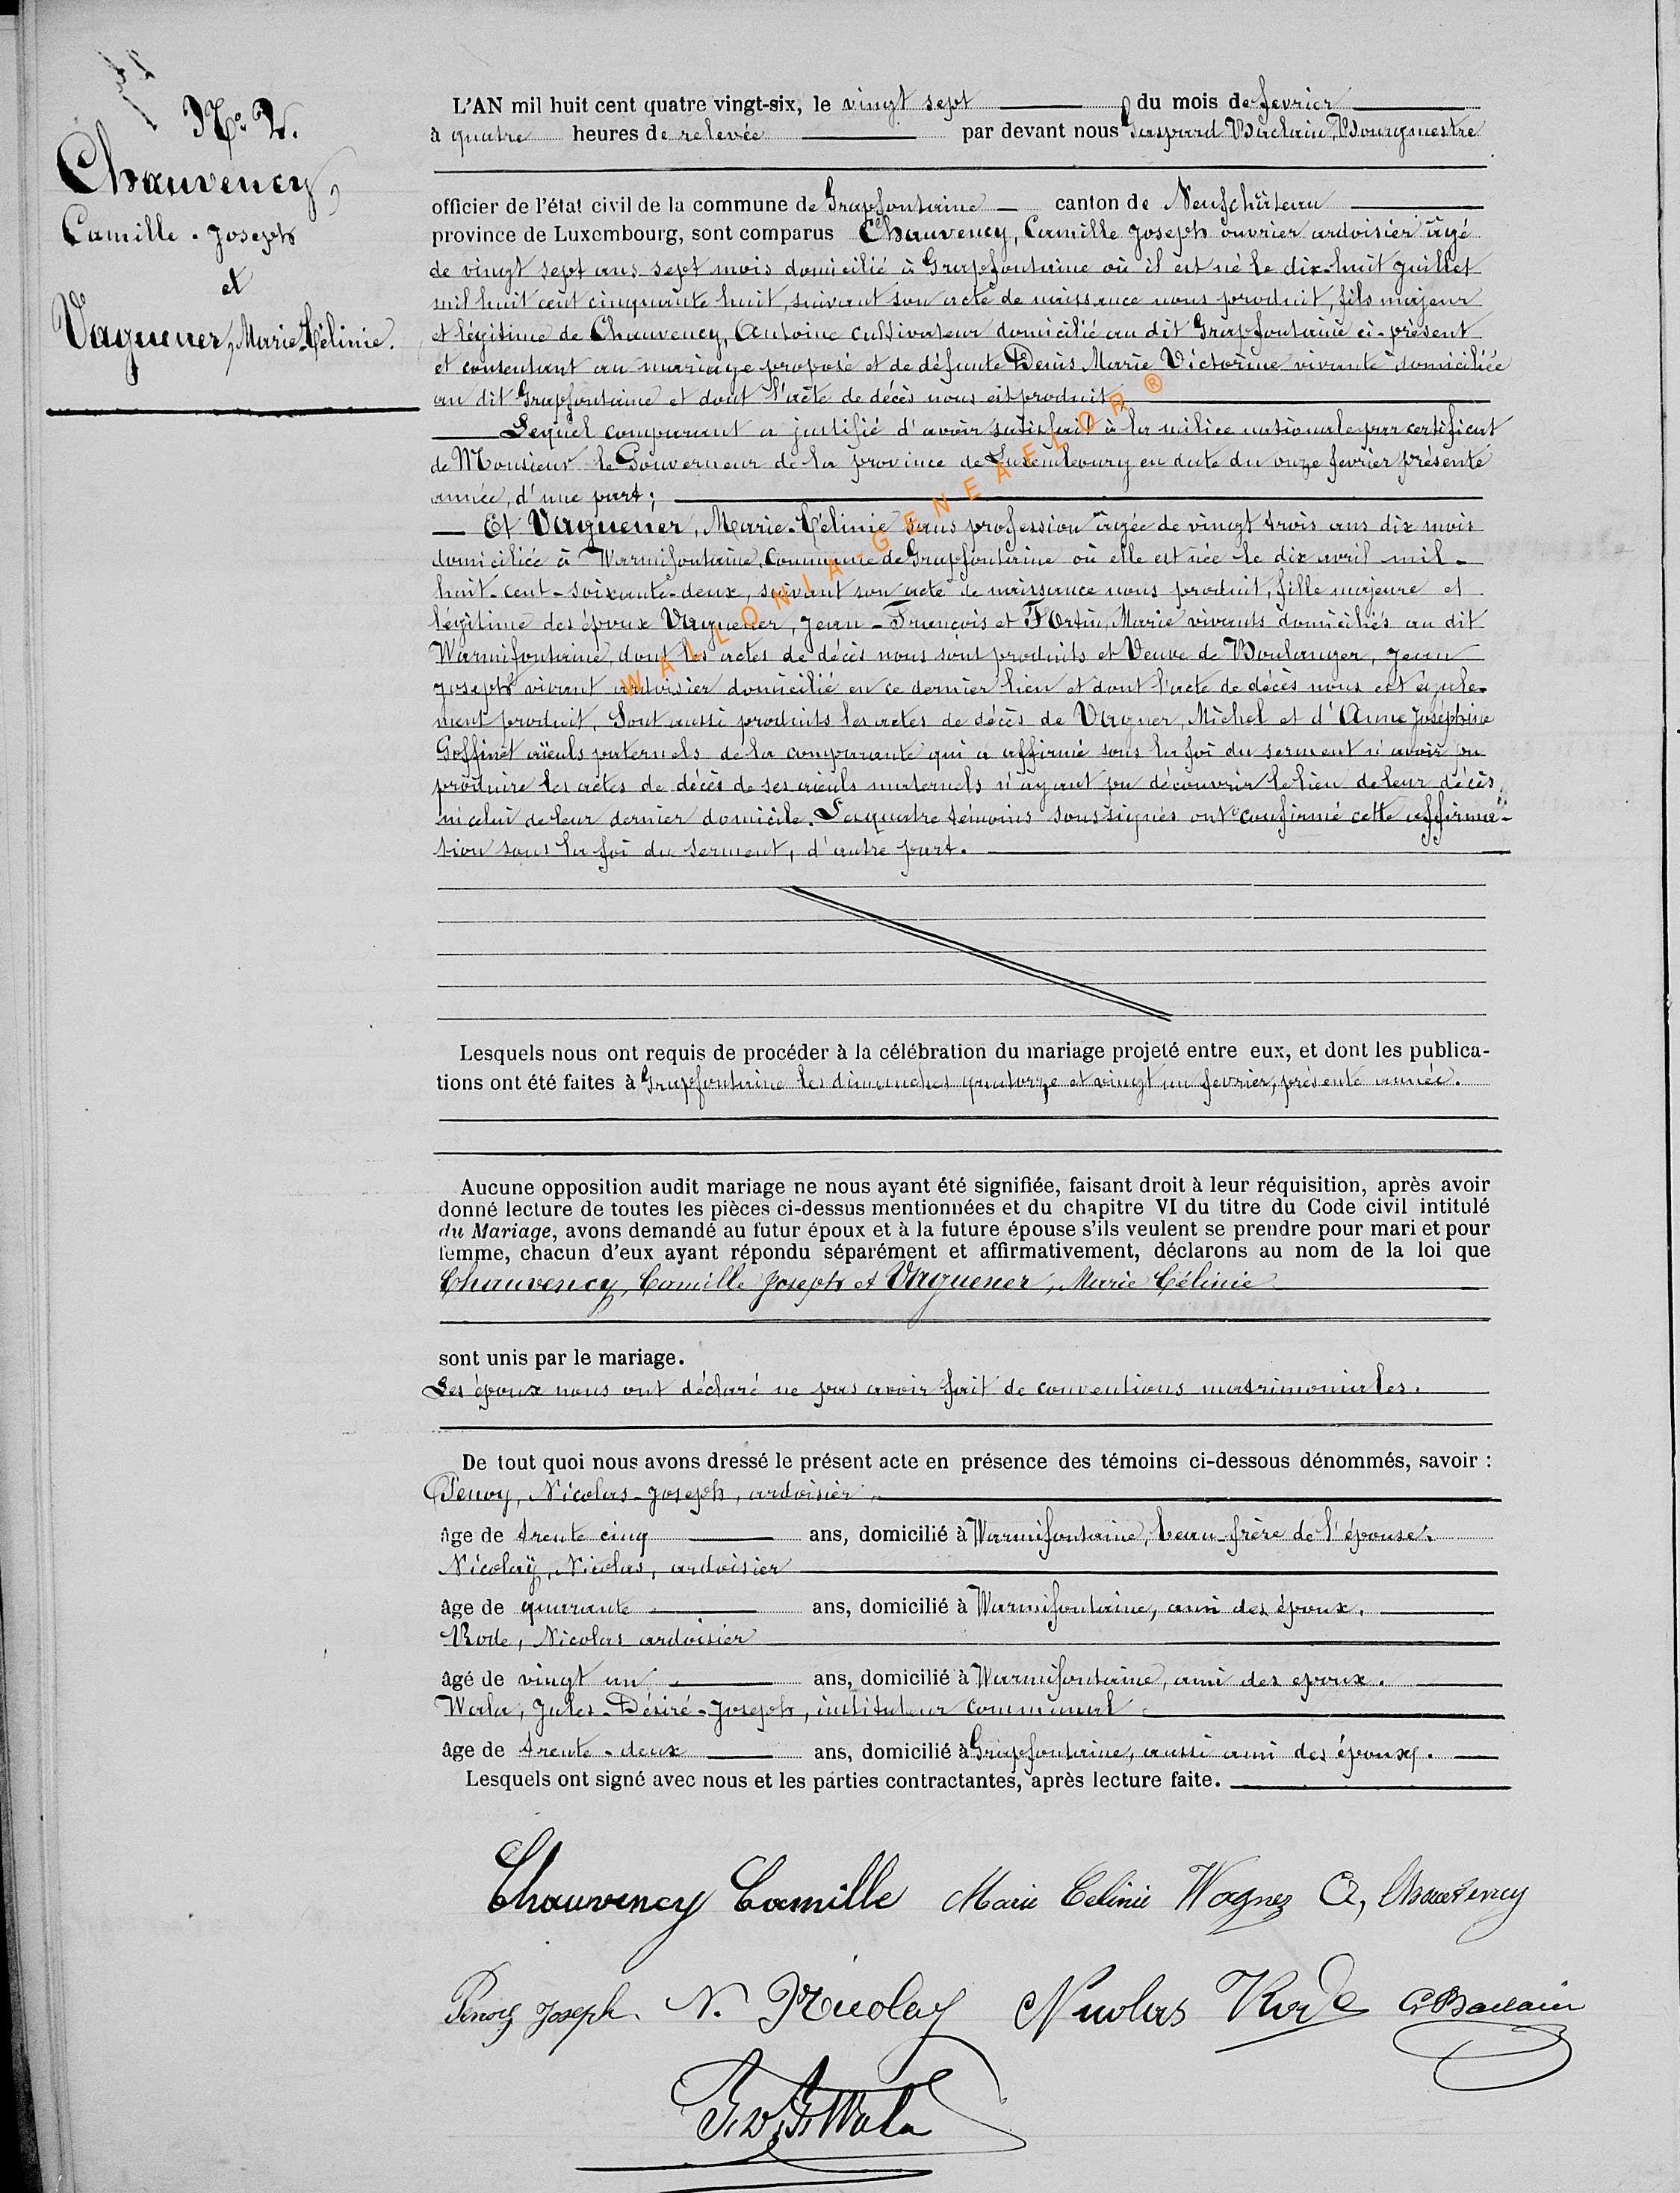 No. 2.
Chauvency,
Camille-Joseph
et
Vaguener, Marie-Célinie.
L'AN mil huit cent quatre vingt-six, le vingt sept du mois de fevrier
à quatre heures de relevée par devant nous Gaspard Baclain, Bourgmestre
officier de l'état civil de la commune de Grapfontaine canton de Neufchâteau
province de Luxembourg, sont comparus Chauvency, Camille Joseph ouvrier ardoisier âgé
de vingt sept ans sept mois domicilié à Grapfontaine où il est né le dix-huit juillet
mil huit cent cinquante huit, suivant son acte de naissance nous produit, fils majeur
et légitime de Chauvency, Antoine cultivateur domicilié au dit Grapfontaine ci-présent
et consentant au mariage proposé et de défunte Denis Marie Victorine vivante domiciliée
au dit Grapfontaine et dont l'acte de décès nous est produit
Lequel comparant a justifié d'avoir satisfait à la milice nationale par certificat
de Monsieur le Gouverneur de la province de Luxembourg en date du onze fevrier présente
année, d'une part;
Et Vaguener, Marie-Célinie sans profession âgée de vingt trois ans dix mois
domiciliée à Warmifontaine, Commune de Grapfontaine où elle est née le dix avril mil-
huit-cent-soixante-deux, suivant son acte de naissance nous produit, fille majeure et
légitime des époux Vaguener, Jean-François et Hortin, Marie vivants domiciliés au dit
Warmifontaine, dont les actes de décès nous sont produits et Veuve de Boulanger, Jean
Joseph vivant ardoisier domicilié en ce dernier lieu et dont l'acte de décès nous est égale-
ment produit. Sont aussi produits les actes de décès de Vagner, Michel et d'Anne Joséphine
Goffinet aïeuls paternels de la comparante qui a affirmé sous la foi du serment n'avoir pu
produire les actes de décès de ses aïeuls maternels n'ayant pu découvrir le lieu de leur décès,
ni celui de leur dernier domicile. Les quatre témoins soussignés ont confirmé cette affirma-
tion sous la foi du serment, d'autre part.
WALLONIA-GENEAELOR ®
Lesquels nous ont requis de procéder à la célébration du mariage projeté entre eux, et dont les publica-
tions ont été faites à Grapfontaine les dimanches quatorze et vingt un fevrier, présente année.
Aucune opposition audit mariage ne nous ayant été signifiée, faisant droit à leur réquisition, après avoir
donné lecture de toutes les pièces ci-dessus mentionnées et du chapitre VI du titre du Code civil intitulé
du Mariage, avons demandé au futur époux et à la future épouse s'ils veulent se prendre pour mari et pour
femme, chacun d'eux ayant répondu séparément et affirmativement, déclarons au nom de la loi que
Chauvency, Camille Joseph et Vaguener, Marie Célinie
sont unis par le mariage.
Les époux nous ont déclaré ne pas avoir fait de conventions matrimoniales.
De tout quoi nous avons dressé le présent acte en présence des témoins ci-dessous dénommés, savoir :
Penoy, Nicolas-Joseph, ardoisier
âge de trente cinq ans, domicilié à Warmifontaine, beau-frère de l'épouse.
Nicolaÿ, Nicolas, ardoisier
âge de quarante ans, domicilié à Warmifontaine, ami des époux.
Rode, Nicolas ardoisier
âgé de vingt un ans, domicilié à Warmifontaine, ami des epoux.
Wala, Jules-Désiré-Joseph, instituteur communal
âge de trente-deux ans, domicilié à Grapfontaine, aussi ami des époux.
Lesquels ont signé avec nous et les parties contractantes, après lecture faite.
Chauvency Camille Marie Celinie Wagner A, Chauvency
Penoy Joseph. N. Nicolay Nicolas Rode G Baclain
J. D. J. Wala